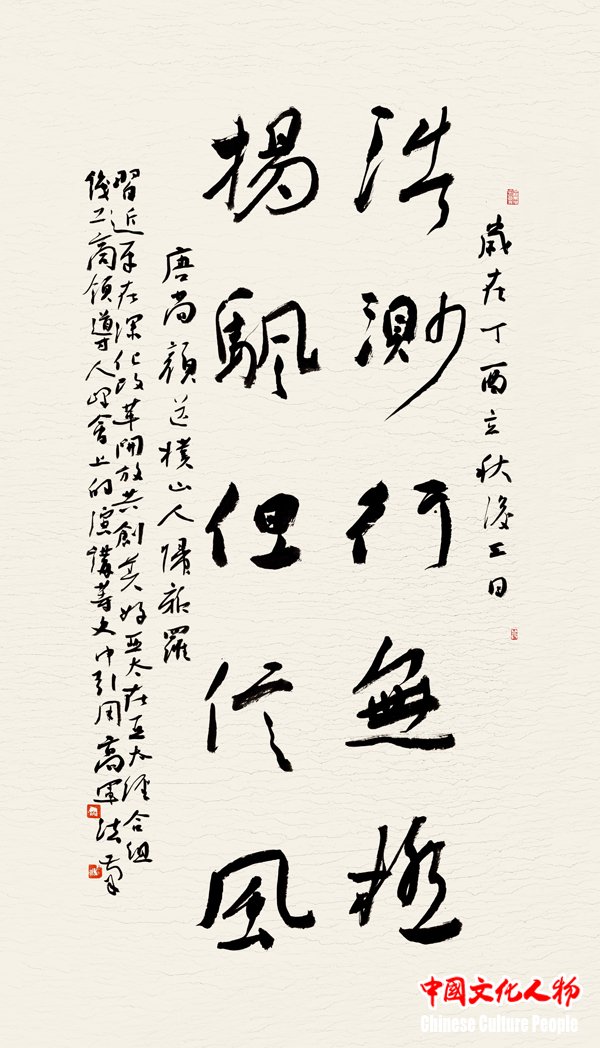 歲在丁酉立秋後日
浩渺行無極
揚颿但信風
唐尚顏送樸山人歸新羅
習近平在深化改革開放共創美好亞太在亞太經合組
織工商領導人峰會上的演講等文中引用高軍法書
中国文化人物
Chinese Culture People